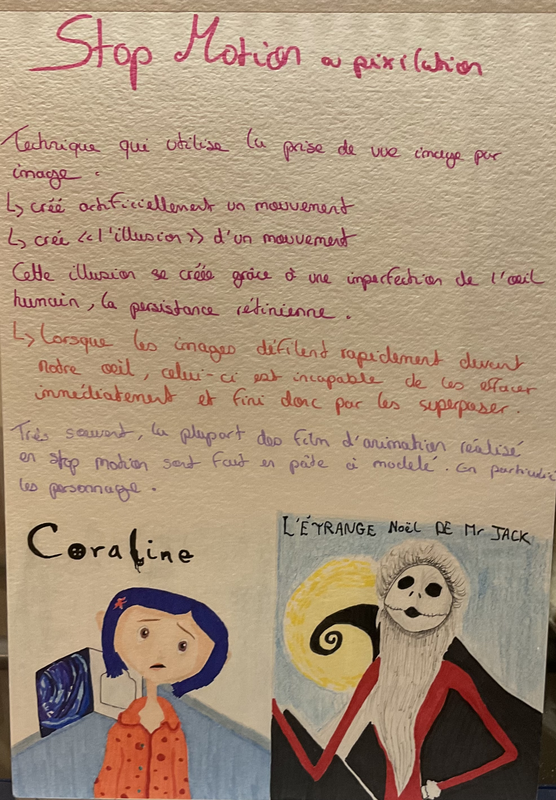 Stop Motion ou pixilation
Technique qui utilise la prise de vue image par
image.
↳ créé artificiellement un mouvement
↳ crée «l'illusion» d'un mouvement
Cette illusion se créée grâce à une imperfection de l'œil
humain, la persistance rétinienne.
↳ Lorsque les images défilent rapidement devant
notre œil, celui-ci est incapable de les effacer
immédiatement et fini donc par les superposer.
Très souvent, la plupart des film d'animation réalisé
en stop motion sont fait en pâte à modelé. En particulier
les personnage.
Coraline
L'ÉTRANGE Noël DE Mr JACK